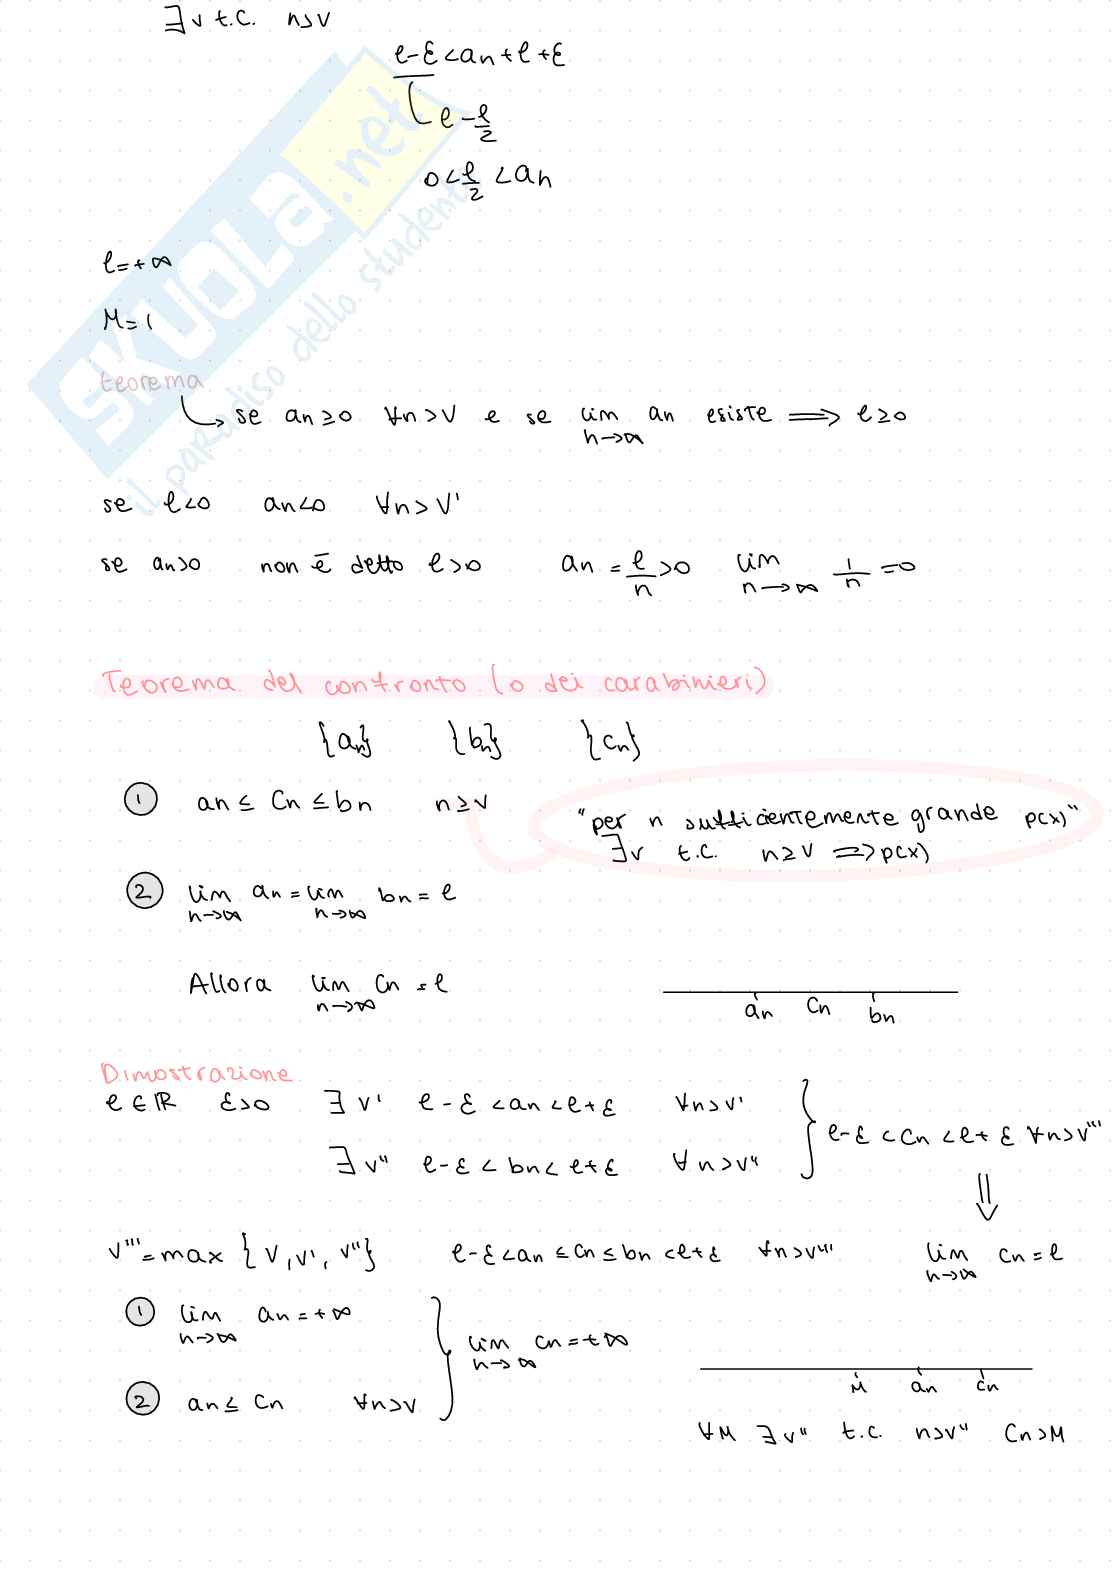 ∃ν t.c. n>ν
ℓ-ε<an+ℓ+ε
ℓ-ℓ/2
0<ℓ/2<an
ℓ=+∞
M=1
teorema
se an≥0 ∀n>ν e se lim n→∞ an esiste ⟹ ℓ≥0
se ℓ<0 an<0 ∀n>ν'
se an>0 non è detto ℓ>0 an=ℓ/n>0 lim n→∞ 1/n=0
Teorema del confronto (o dei carabinieri)
{an} {bn} {cn}
① an≤cn≤bn n≥ν
"per n sufficientemente grande p(x)"
∃ν t.c. n≥ν ⟹p(x)
② lim n→∞ an=lim n→∞ bn=ℓ
Allora lim n→∞ cn=ℓ
an cn bn
Dimostrazione
ℓ∈ℝ ε>0 ∃ν' ℓ-ε<an<ℓ+ε ∀n>ν'
∃ν'' ℓ-ε<bn<ℓ+ε ∀n>ν''
} ℓ-ε<cn<ℓ+ε ∀n>ν'''
⇓
ν'''=max{ν,ν',ν''} ℓ-ε<an≤cn≤bn<ℓ+ε ∀n>ν''' lim n→∞ cn=ℓ
① lim n→∞ an=+∞
② an≤cn ∀n>ν
} lim n→∞ cn=+∞
M an cn
∀M ∃ν'' t.c. n>ν'' cn>M
SKUOLA.net
il paradiso dello studente